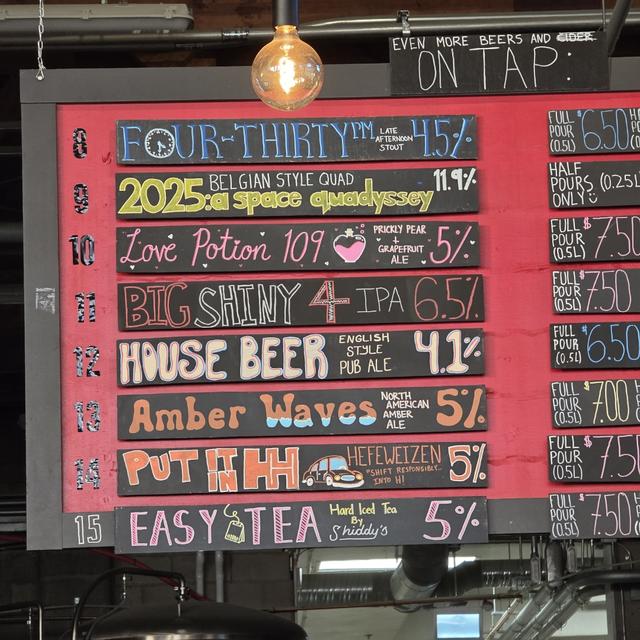 EVEN MORE BEERS AND CIDER
ON TAP:
8 FOUR-THIRTYPM LATE AFTERNOON STOUT 4.5% FULL POUR (0.5L) $6.50
9 BELGIAN STYLE QUAD 2025: a space quadyssey 11.9% HALF POURS ONLY (0.25L)
10 Love Potion 109 PRICKLY PEAR + GRAPEFRUIT ALE 5% FULL POUR (0.5L) $7.50
11 BIG SHINY 4 IPA 6.5% FULL POUR (0.5L) $7.50
12 HOUSE BEER ENGLISH STYLE PUB ALE 4.1% FULL POUR (0.5L) $6.50
13 Amber Waves NORTH AMERICAN AMBER ALE 5% FULL POUR (0.5L) $7.00
14 PUT IT IN H HEFEWEIZEN "SHIFT RESPONSIBLY... INTO H! 5% FULL POUR (0.5L) $7.50
15 EASY TEA Hard Iced Tea By Shiddy's 5% FULL POUR (0.5L) $7.50